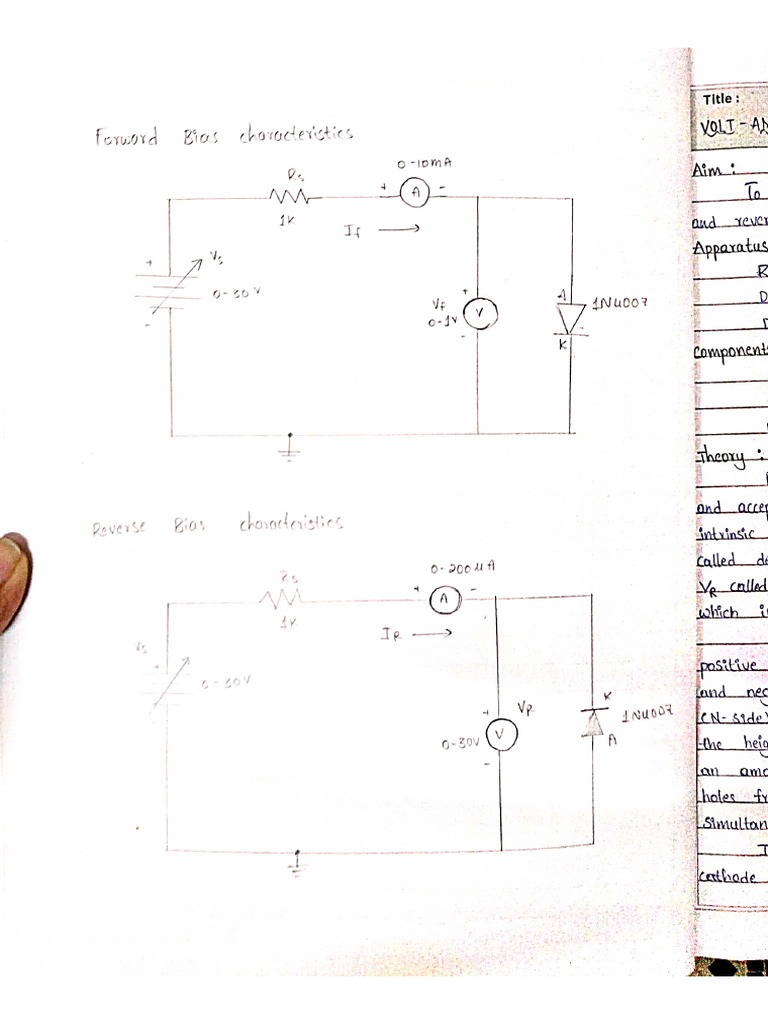 Forward Bias characteristics
0-10mA
Rs
+ A -
1K
If
+ Vs
0-30V
-
Vf
0-1V
+ V -
A
1N4007
K
Reverse Bias characteristics
0-200µA
Rs
+ A -
1K
IR
Vs
0-30V
VR
0-30V
+ V -
K
1N4007
A
Title :
VOLT - AM
Aim :
To
and rever
Apparatus
R
D
D
Components
Theory :
and accep
intrinsic
called de
VR called
which i
positive
and neg
(N-side)
the heig
an amo
holes fr
Simultan
I
cathode